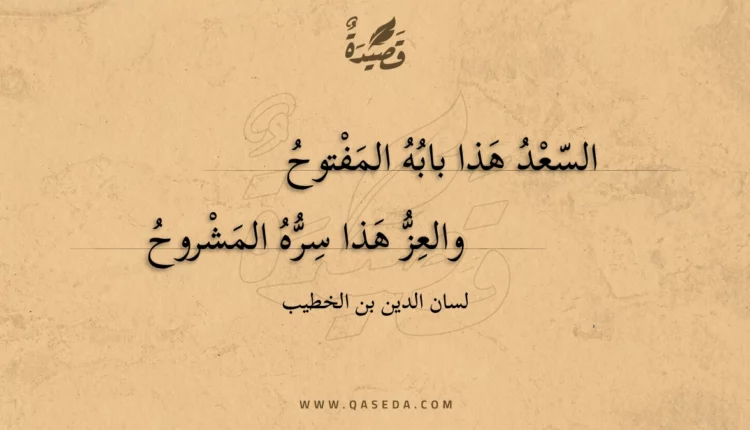 قَصِيدَةٌ
السّعْدُ هَذا بابُهُ المَفْتوحُ
والعِزُّ هَذا سِرُّهُ المَشْروحُ
لسان الدين بن الخطيب
WWW.QASEDA.COM